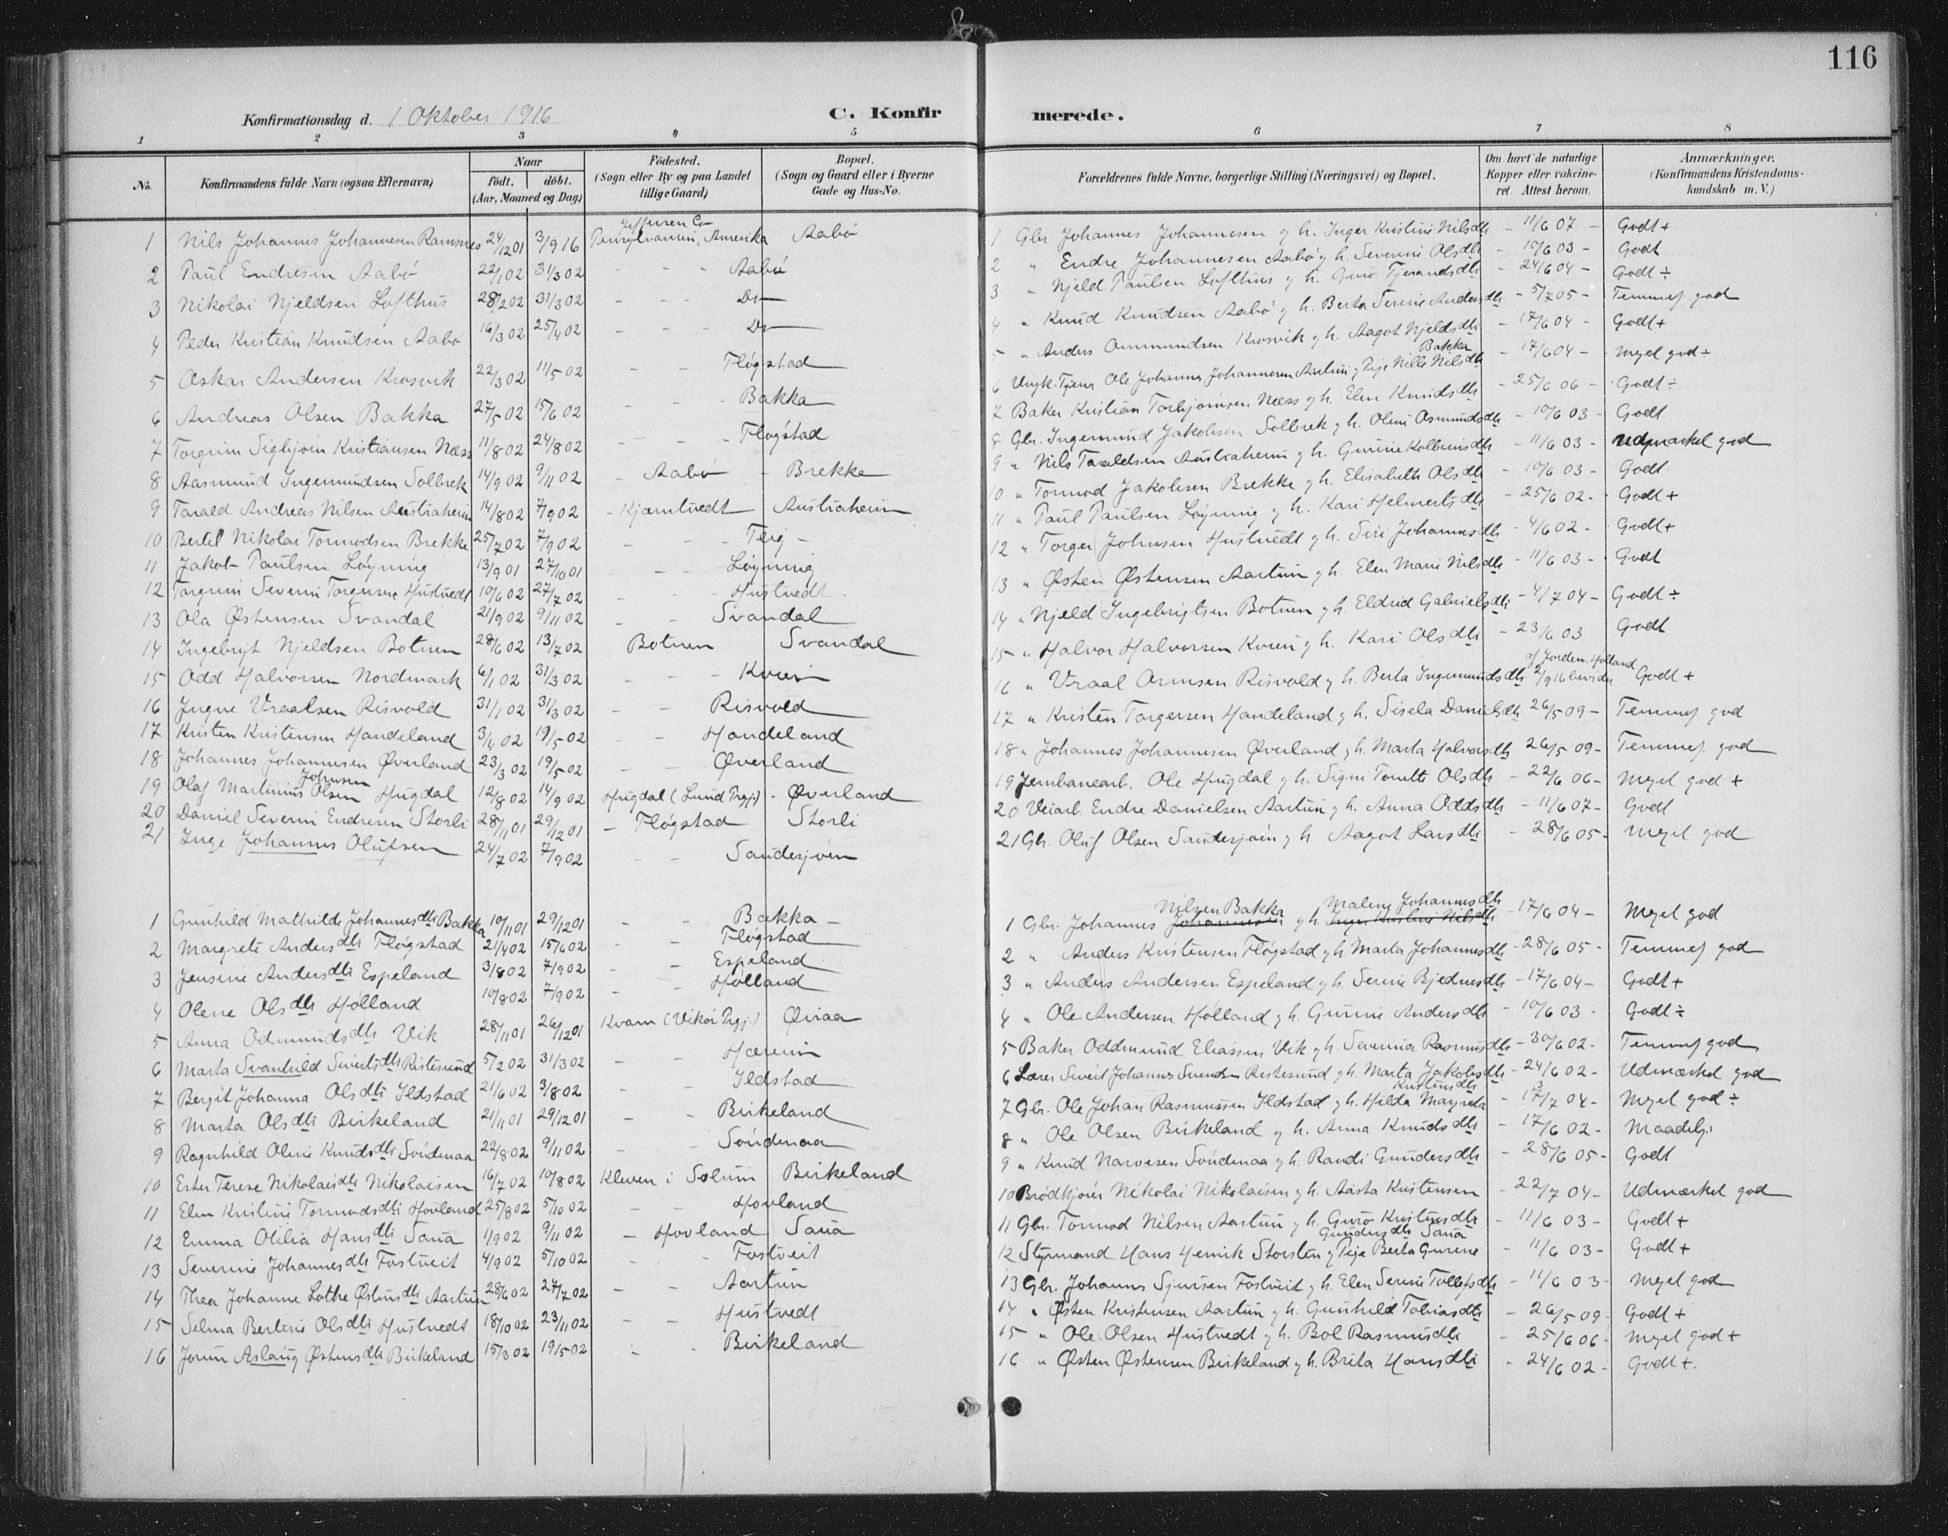 116
Konfirmationsdag d. 1 Oktober 1916
C. Konfirmerede.
1 2 3 4 5 6 7 8
No. Konfirmandens fulde Navn (ogsaa Efternavn) Naar født. døbt. (Aar, Maaned og Dag) Fødested. (Sogn eller By og paa Landet tillige Gaard) Bopæl. (Sogn og Gaard eller i Byerne Gade og Hus-No. Forældrenes fulde Navne, borgerlige Stilling (Næringsvei) og Bopæl. Om havt de naturlige Kopper eller vakcineret. Attest herom. Anmærkninger. (Konfirmandens Kristendomskundskab m. V.)
1 Nils Johannes Johannesen Ramsnes 24/12 01 3/9 16 Jefferson Co Pensylvanien, Amerika Aabø 1 Gbr Johannes Johannesen g h. Inger Kristine Nilsdtr - 11/6 07 - Godt +
2 Paul Endresen Aabø 22/1 02 31/3 02 - - - Aabø 2 " Endre Johannesen Aabø g h. Severine Olsdtr - 10/6 03 - Godt
3 Nikolai Njeldsen Lofthus 28/2 02 31/3 02 - - - Do 3 " Njeld Paulsen Lofthus g h. Guro Tjerandsdtr - 24/6 04 - Godt ÷
4 Peder Kristian Knudsen Aabø 16/3 02 25/4 02 - - - Do 4 " Knud Knudsen Aabø g h. Berta Serine Andersdtr - 5/7 05 - Temmel god
5 Oskar Andersen Krosvik 22/3 02 11/5 02 - - Fløgstad 5 " Anders Ommundsen Krosvik g h. Aagot Njeldsdtr - 17/6 04 - Godt +
6 Andreas Olsen Bakka 27/5 02 15/6 02 - - Bakka 6 Ungk. Tjener Ole Johannes Johannesen Aartun g Pige Nille Nilsdtr Bakka - 17/6 04 - Meget god ÷
7 Torgrim Sigbjørn Kristiansen Næss 11/8 02 24/8 02 - - - Fløgstad 7 Baker Kristian Torbjørnsen Næss g h. Elen Knudsdtr - 25/6 06 - Godt ÷
8 Aasmund Ingemundsen Solbrek 14/9 02 9/11 02 - Aabø - Brekke 8 Gbr. Ingemund Jakobsen Solbrek g h. Oline Osmundsdtr - 10/6 03 - Godt
9 Tarald Andreas Nilsen Austiaheim 14/8 02 7/9 02 - Kjamtvedt Austiaheim 9 " Nils Taraldsen Austiaheim g h. Gurine Kolbeinsdtr - 11/6 03 - Udmærket god
10 Bertel Nikolai Tormodsen Brekke 25/7 02 7/9 02 - - Teig - 10 " Tormod Jakobsen Brekke g h. Elisabeth Olsdtr - 10/6 03 - Godt
11 Jakob Paulsen Løyning 13/9 01 27/10 01 - - - Løyning 11 " Paul Paulsen Løyning g h. Kari Helmertsdtr - 25/6 02 - Godt +
12 Torgrim Severin Torgersen Hustvedt 10/6 02 27/7 02 - - Hustvedt 12 " Torger Johnsen Hustvedt g h. Siri Johannesdtr - 4/6 02 - Godt +
13 Ola Østensen Svandal 21/9 02 9/11 02 - - Svandal 13 " Østen Østensen Aartun g h. Elen Marie Nilsdtr - 11/6 03 - Godt
14 Ingebrigt Njeldsen Botnen 28/6 02 13/7 02 Botnen Svandal 14 " Njeld Ingebrigtsen Botnen g h. Eldrid Gabrielsdtr - 4/7 04 - Godt ÷
15 Odd Halvorsen Nordmark 6/1 02 31/3 02 - - - Kvien 15 " Halvor Halvorsen Kvien g h. Kari Olsdtr - 23/6 03 Godt
16 Ingve Vraalsen Risvold 31/1 02 31/3 02 - - Risvold 16 " Vraal Ormsen Risvold g h. Berta Ingemundsdtr af Jordem. Hølland 2/9 16 Godt +
17 Kristen Kristensen Handeland 3/4 02 19/5 02 - - Handeland 17 " Kristen Torgersen Handeland g h. Sisela Danielsdtr 26/5 09 - Temmel god
18 Johannes Johannesen Øverland 23/3 02 19/5 02 - - Øverland 18 " Johannes Johannesen Øverland g h. Marta Halvorsdtr 26/5 09 - Temmel. god
19 Olaf Martinius Johnsen Olsen Hugdal 12/8 02 14/9 02 Hugdal (Lund Prgj.) - Øverland 19 Jernbanearb. Ole Hugdal g h. Signi Tonette Olsdtr - 22/6 06 - Meget god +
20 Daniel Severin Endresen Storli 28/11 01 29/12 01 - Fløgstad Storli 20 Veiarb. Endre Danielsen Aartun g h. Anna Oddsdtr - 11/6 07 - Godt
21 Inge Johannes Olufsen 24/7 02 7/9 02 - - Sandersjøen 21 Gbr. Oluf Olsen Sandersjøen g h Aagot Larsdtr - 28/6 05 - Meget god
1 Gunhild Mathilde Johannesdtr Bakka 10/11 01 29/12 01 - - Bakka - 1 Gbr. Johannes Johannesen Nilsen Bakka g h Inger Kristine Nilsdtr Malene Johannesdtr - 17/6 04 - Meget god
2 Margrete Andersdtr Fløgstad 21/4 02 15/6 02 - - Fløgstad 2 " Anders Kristensen Fløgstad g h. Marta Johannesdtr - 28/6 05 - Temmel god
3 Jensine Andersdtr Espeland 3/8 02 7/9 02 - - Espeland 3 " Anders Andersen Espeland g h. Serine Bjednesdtr - 17/6 04 - Godt +
4 Olene Olsdtr Hølland 10/8 02 7/9 02 - - Hølland 4 " Ole Andersen Hølland g h. Gurine Andersdtr - 10/6 03 - Godt ÷
5 Anna Odmundsdtr Vik 28/11 01 26/12 01 Kvam (Vikør Prgj.) Øviaa 5 Baker Oddmund Eliassen Vik g h. Severina Rasmusdtr - 30/6 02 - Temmel god
6 Marta Svanhild Sivertsdtr Ristesund 5/2 02 31/3 02 - - 6 Lærer Sivert Johannes Svendsen Ristesund g h. Marta Jakobsdtr - 24/6 02 - Udmærket god
7 Bergit Johanna Olsdtr Ilstad 21/6 02 3/8 02 - - Ildstad 7 Gbr. Ole Johan Rasmussen Ildstad g h. Helda Margreta Kristensdtr - 17/7 04 - Meget god ÷
8 Marta Olsdtr Birkeland 21/11 01 29/12 01 - - Birkeland 8 " Ole Olsen Birkeland g h. Anna Knudsdtr - 17/6 02 - Maadelig.
9 Ragnhild Oline Knudsdtr Søndenaa 22/8 02 9/11 02 - - Søndenaa 9 " Knud Narvesen Søndenaa g h. Randi Gundersdtr - 28/6 05 - Godt
10 Ester Terese Nikolaisdtr Nikolaisen 16/7 02 10/8 02 Kleven i Solum Birkeland 10 Brødkjører Nikolai Nikolaisen g h. Aasta Kristensen - 22/7 04 - Udmærket god
11 Elen Kristine Tormodsdtr Hovland 25/8 02 5/10 02 - - Hovland 11 Gbr. Tormod Nilsen Aartun g h. Guro Kristensdtr - 11/6 03 - Godt +
12 Emma Otilia Hansdtr Sana 1/9 02 9/11 02 - Hovland Sana 12 Styrmand Hans Henrik Storsten g Pige Berta Gurine Gundersdtr Sana - 11/6 03 - Godt +
13 Severine Johannesdtr Fostveit 4/9 02 5/10 02 - - Fostveit 13 Gbr. Johannes Sjursen Fostveit g h. Elen Serine Tollefsdtr - 11/6 03 - Meget god
14 Thea Johanne Lothe Østensdtr Aartun 28/6 02 27/7 02 - - Aartun 14 " Østen Kristensen Aartun g h. Gunhild Tobiasdtr - 26/5 09 - Godt +
15 Selma Bertine Olsdtr Hustvedt 18/10 02 23/11 02 - - Hustvedt 15 " Ole Olsen Hustvedt g h. Bol Rasmusdtr - 25/6 06 - Meget god +
16 Jorun Aslaug Østensdtr Birkeland 15/3 02 19/5 02 - - Birkeland 16 " Østen Østensen Birkeland g h. Brita Hansdtr - 24/6 02 - Godt +.